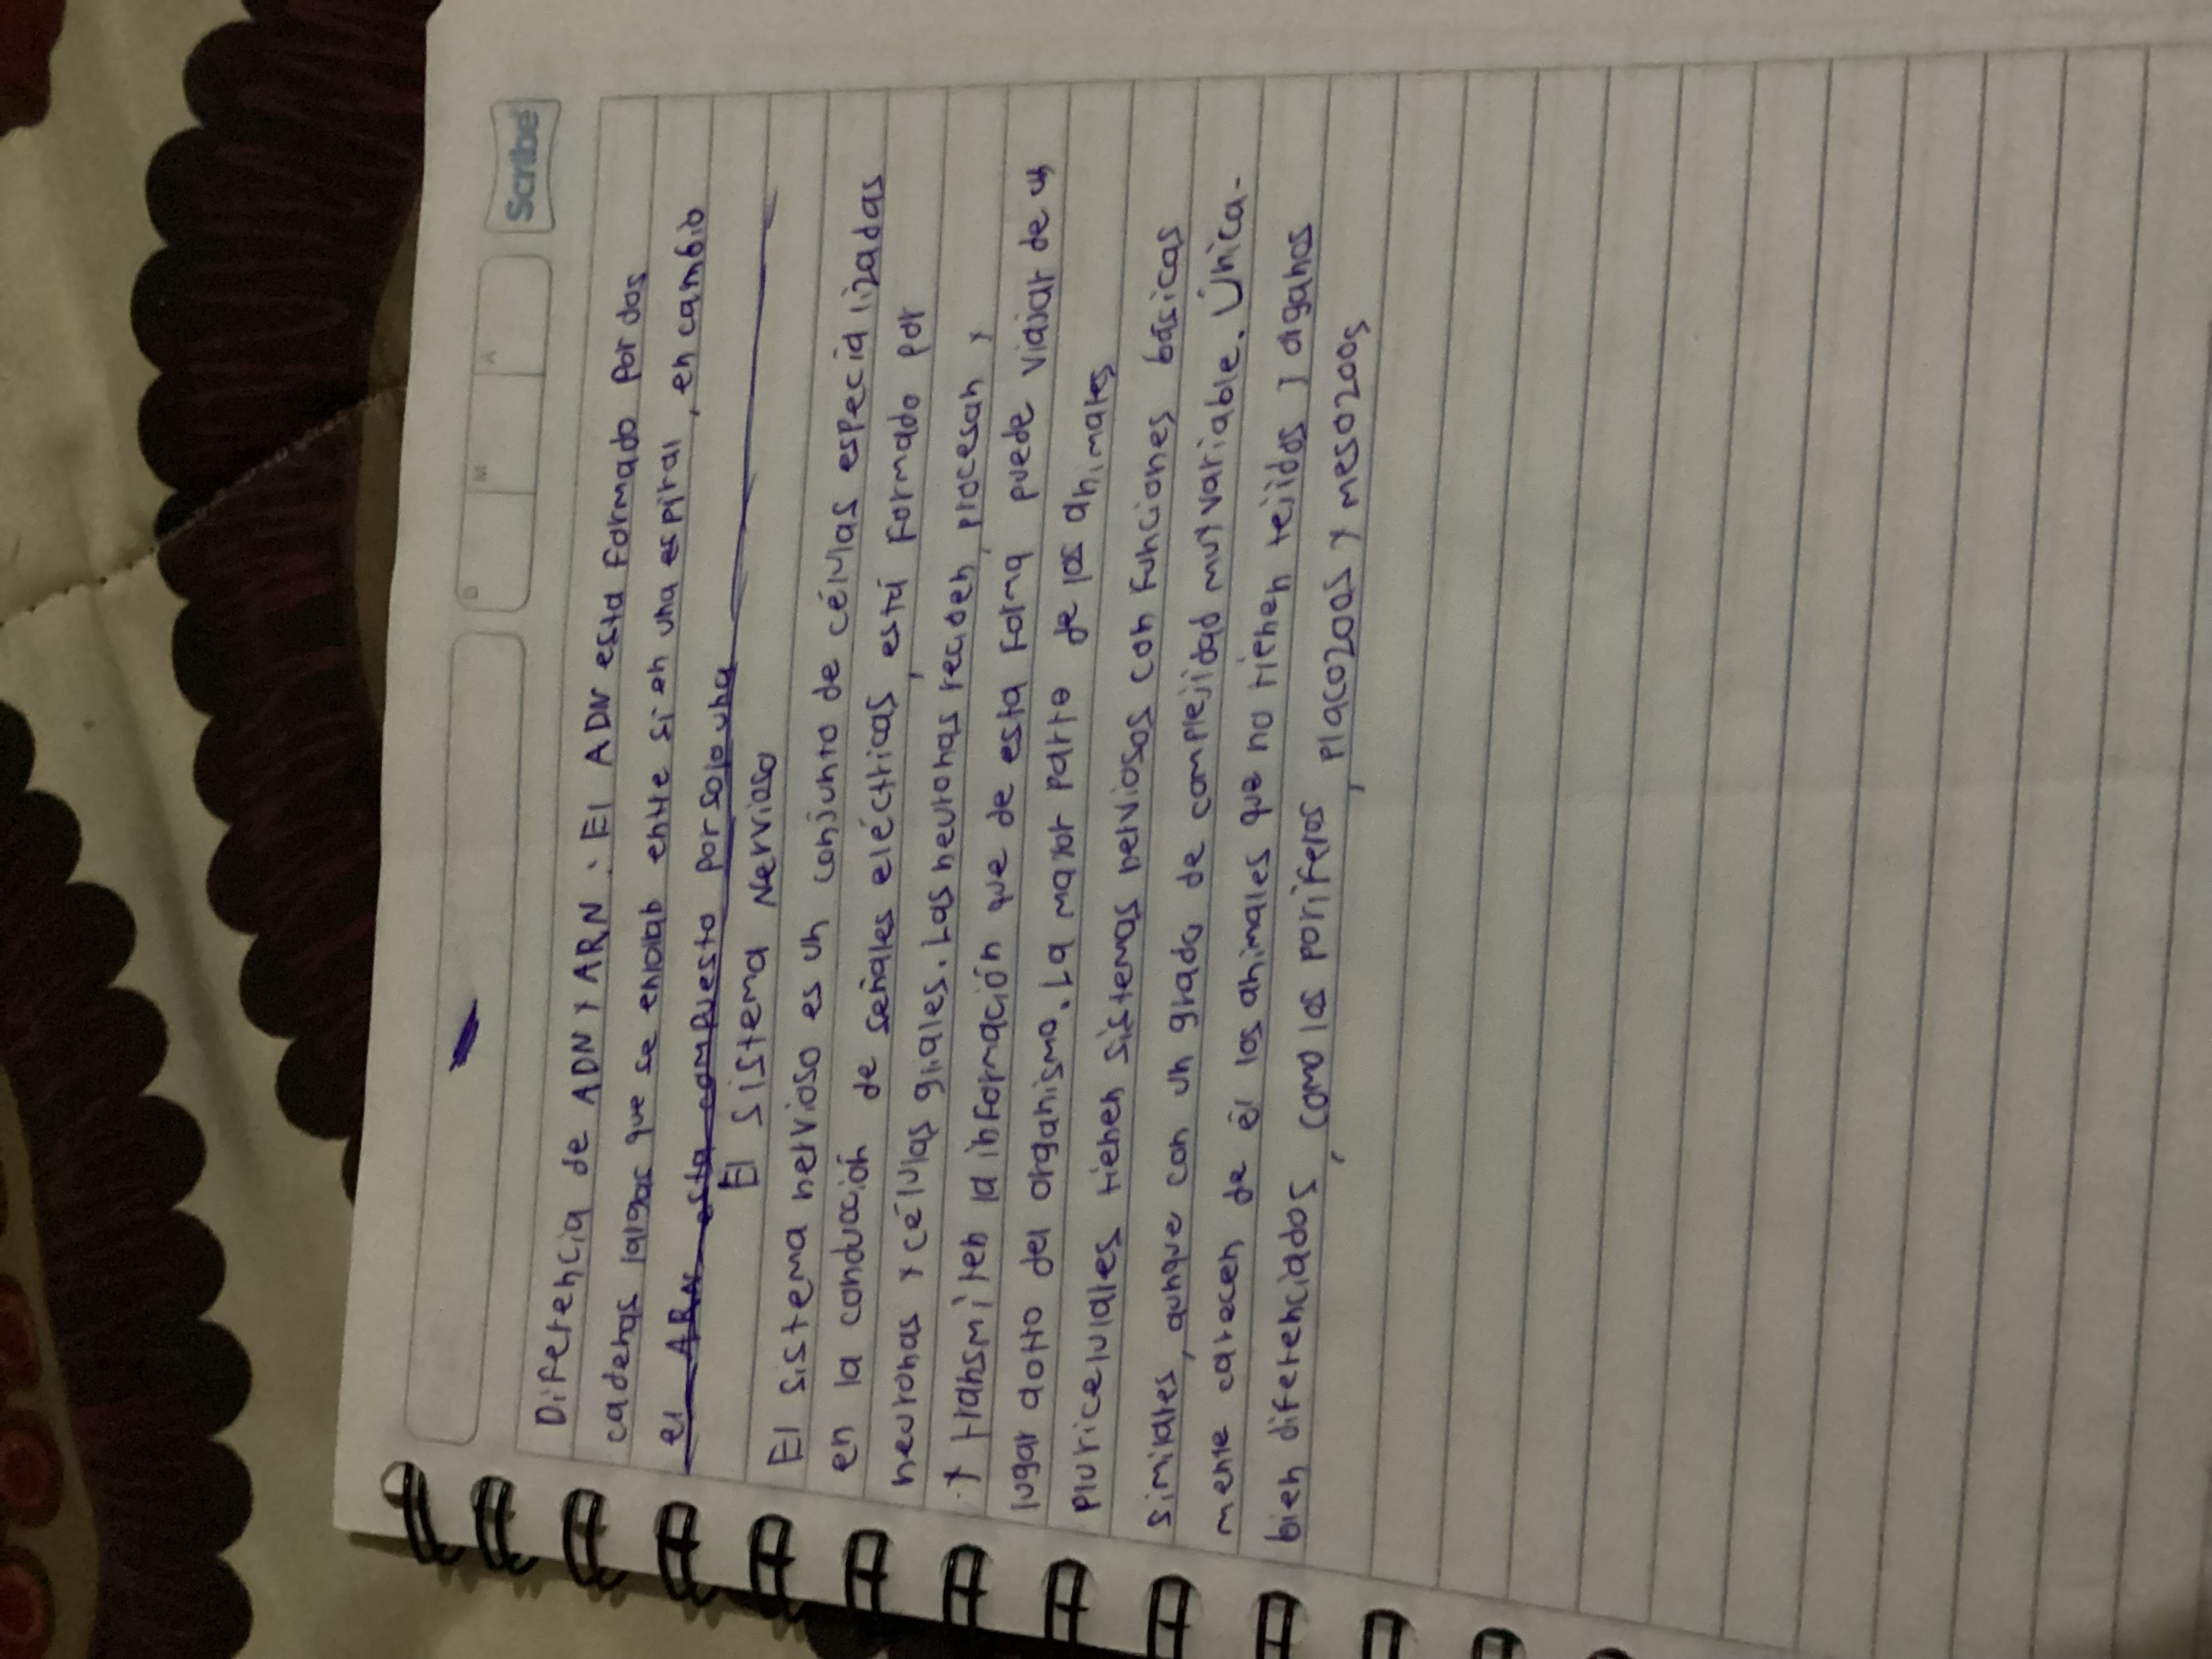 Scribe
D M A
Diferencia de ADN y ARN: El ADN esta formado por dos
cadenas largas que se enrolab entre si en una espiral, en cambio
el ARN esta compuesto por solo una
El sistema Nervioso
El sistema nervioso es un conjunto de células especializadas
en la conducción de señales eléctricas, está formado por
neuronas y células gliales. Las neuronas reciben, procesan y
y transmiten la información que de esta forma puede viajar de un
lugar a otro del organismo. La mayor parte de los animales
pluricelulares tienen sistemas nerviosos con funciones básicas
similares, aunque con un grado de complejidad muy variable. Única-
mente carecen de él los animales que no tienen tejidos y organos
bien diferenciados, como los poriferos, placozoos y mesozoos